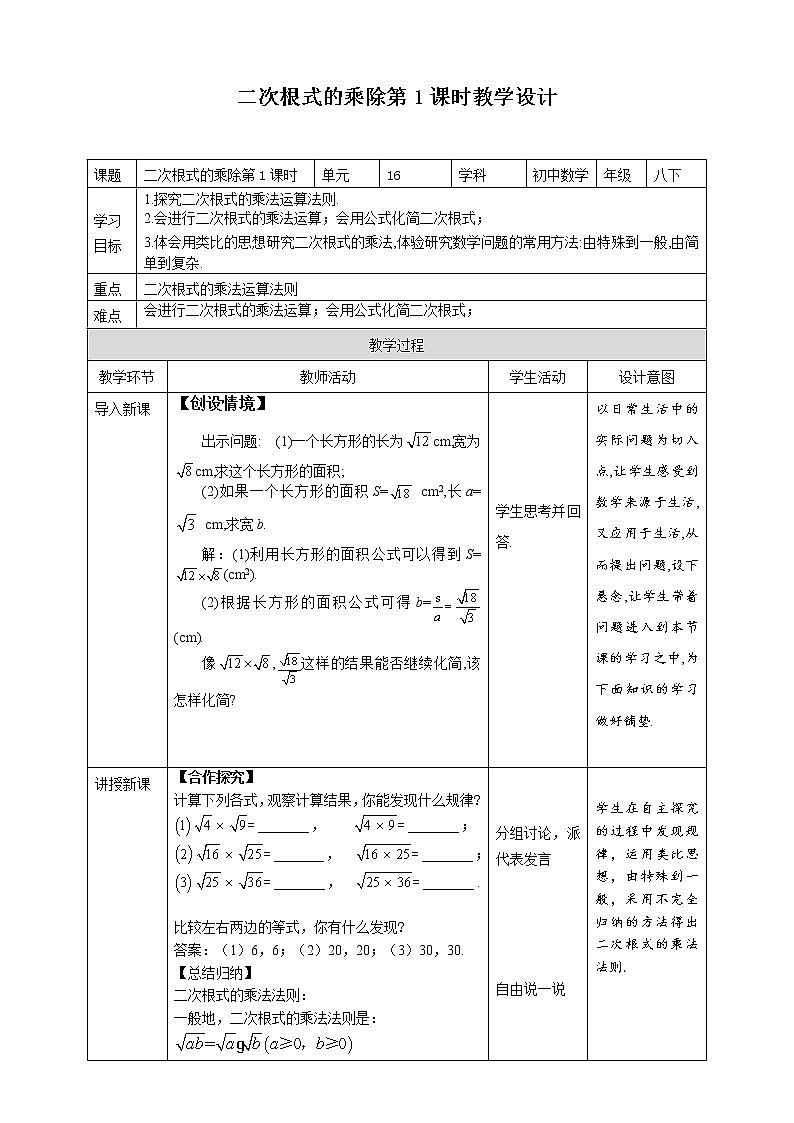 二次根式的乘除第1课时教学设计
课题 二次根式的乘除第1课时 单元 16 学科 初中数学 年级 八下
学习目标
1.探究二次根式的乘法运算法则.
2.会进行二次根式的乘法运算；会用公式化简二次根式；
3.体会用类比的思想研究二次根式的乘法,体验研究数学问题的常用方法:由特殊到一般,由简
单到复杂.
重点 二次根式的乘法运算法则
难点 会进行二次根式的乘法运算；会用公式化简二次根式；
教学过程
教学环节 教师活动 学生活动 设计意图
导入新课
【创设情境】
出示问题: (1)一个长方形的长为√12 cm,宽为
√8 cm,求这个长方形的面积;
(2)如果一个长方形的面积 S=√18 cm²,长 a=
√3 cm,求宽 b.
解：(1)利用长方形的面积公式可以得到 S=
√12×√8 (cm²).
(2)根据长方形的面积公式可得 b=s/a=√18/√3
(cm).
像 √12×√8 , √18/√3 这样的结果能否继续化简,该
怎样化简?
学生思考并回
答.
以日常生活中的
实际问题为切入
点,让学生感受到
数学来源于生活,
又应用于生活,从
而提出问题,设下
悬念,让学生带着
问题进入到本节
课的学习之中,为
下面知识的学习
做好铺垫.
讲授新课
【合作探究】
计算下列各式,观察计算结果,你能发现什么规律?
(1) √4 × √9 = ______ ， √(4 × 9) = ______ ；
(2) √16 × √25 = ______ ， √(16 × 25) = ______ ；
(3) √25 × √36 = ______ ， √(25 × 36) = ______ .
比较左右两边的等式，你有什么发现?
答案：（1）6，6；（2）20，20；（3）30，30.
【总结归纳】
二次根式的乘法法则：
一般地，二次根式的乘法法则是：
√(ab)=√a g√b (a≥0，b≥0)
分组讨论，派
代表发言
自由说一说
学生在自主探究
的过程中发现规
律，运用类比思
想，由特殊到一
般，采用不完全
归纳的方法得出
二次根式的乘法
法则.